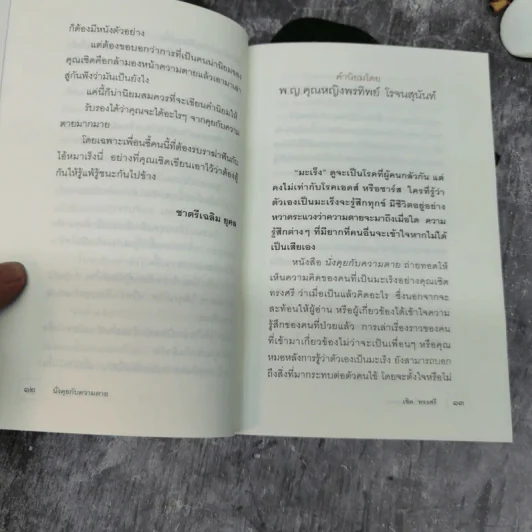 ก็ต้องมีหนังตัวอย่าง
แต่ต้องขอบอกว่าการที่เป็นคนน่านิยมของ
คุณเชิดคือกล้ามองหน้าความตายแล้วเอามาเล่า
สู่กันฟังว่ามันเป็นยังไง
แค่นี้ก็น่านิยมสมควรที่จะเขียนคำนิยมให้
รับรองได้ว่าคุณจะได้อะไรๆ จากคุยกับความ
ตายมากมาย
โดยเฉพาะเพื่อนขี้คนนี้ที่ต้องรบราฆ่าฟันกับ
ไอ้หมาเร็งนี่ อย่างที่คุณเชิดเขียนเอาไว้ว่าต้องสู้
กันให้รู้แพ้รู้ชนะกันไปข้าง
ชาตรีเฉลิม ยุคล
๑๒ นั่งคุยกับความตาย
คำนิยมโดย
พ.ญ.คุณหญิงพรทิพย์ โรจนสุนันท์
“มะเร็ง” ดูจะเป็นโรคที่ผู้คนกลัวกัน แต่
คงไม่เท่ากับโรคเอดส์ หรือซาร์ส ใครที่รู้ว่า
ตัวเองเป็นมะเร็งจะรู้สึกทุกข์ มีชีวิตอยู่อย่าง
หวาดระแวงว่าความตายจะมาถึงเมื่อใด ความ
รู้สึกต่างๆ ที่มียากที่คนอื่นจะเข้าใจหากไม่ได้
เป็นเสียเอง
หนังสือ นั่งคุยกับความตาย ถ่ายทอดให้
เห็นความคิดของคนที่เป็นมะเร็งอย่างคุณเชิด
ทรงศรี ว่าเมื่อเป็นแล้วคิดอะไร ซึ่งนอกจากจะ
สะท้อนให้ผู้อ่าน หรือผู้เกี่ยวข้องได้เข้าใจความ
รู้สึกของคนที่ป่วยแล้ว การเล่าเรื่องราวของคน
ที่เข้ามาเกี่ยวข้องไม่ว่าจะเป็นเพื่อนๆ หรือคุณ
หมอหลังการรู้ว่าตัวเองเป็นมะเร็ง ยังสามารถบอก
ถึงสิ่งที่มากระทบต่อตัวคนไข้ โดยจะตั้งใจหรือไม่
เชิด ทรงศรี ๑๓